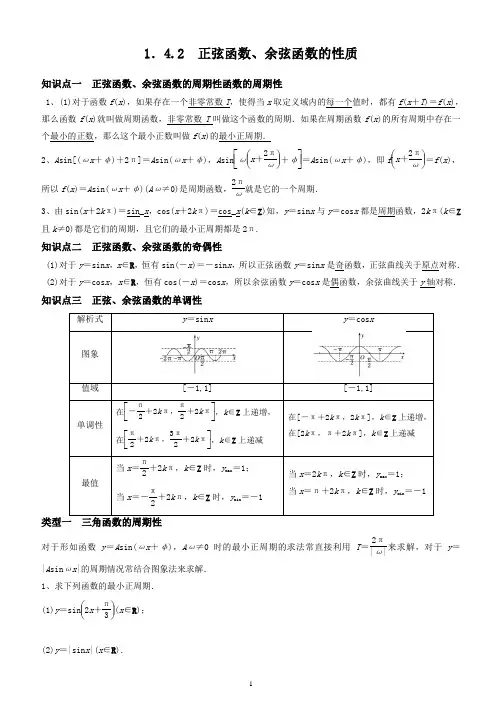 1．4.2 正弦函数、余弦函数的性质
知识点一 正弦函数、余弦函数的周期性函数的周期性
1、(1)对于函数 f(x)，如果存在一个非零常数 T，使得当 x 取定义域内的每一个值时，都有 f(x＋T)＝f(x)，
那么函数 f(x)就叫做周期函数，非零常数 T 叫做这个函数的周期．如果在周期函数 f(x)的所有周期中存在一
个最小的正数，那么这个最小正数叫做 f(x)的最小正周期．
2、Asin[(ωx＋φ)＋2π]＝Asin(ωx＋φ)，Asin[ω(x＋2π/ω)＋φ]＝Asin(ωx＋φ)，即 f(x＋2π/ω)＝f(x)，
所以 f(x)＝Asin(ωx＋φ)(Aω≠0)是周期函数，2π/ω就是它的一个周期．
3、由 sin(x＋2kπ)＝sin_x，cos(x＋2kπ)＝cos_x(k∈Z)知，y＝sinx 与 y＝cosx 都是周期函数，2kπ(k∈Z
且 k≠0)都是它们的周期，且它们的最小正周期都是 2π.
知识点二 正弦函数、余弦函数的奇偶性
(1)对于 y＝sinx，x∈R，恒有 sin(－x)＝－sinx，所以正弦函数 y＝sinx 是奇函数，正弦曲线关于原点对称．
(2)对于 y＝cosx，x∈R，恒有 cos(－x)＝cosx，所以余弦函数 y＝cosx 是偶函数，余弦曲线关于 y轴对称．
知识点三 正弦、余弦函数的单调性
解析式 y＝sinx y＝cosx
图象
值域 [－1,1] [－1,1]
单调性 在[－π/2＋2kπ，π/2＋2kπ]，k∈Z 上递增，
在[π/2＋2kπ，3π/2＋2kπ]，k∈Z 上递减
在[－π＋2kπ，2kπ]，k∈Z 上递增，
在[2kπ，π＋2kπ]，k∈Z 上递减
最值 当 x＝π/2＋2kπ，k∈Z 时，ymax＝1；
当 x＝－π/2＋2kπ，k∈Z 时，ymin＝－1
当 x＝2kπ，k∈Z 时，ymax＝1；
当 x＝π＋2kπ，k∈Z 时，ymin＝－1
类型一 三角函数的周期性
对于形如函数 y＝Asin(ωx＋φ)，Aω≠0 时的最小正周期的求法常直接利用 T＝2π/|ω|来求解，对于 y＝
|Asinωx|的周期情况常结合图象法来求解．
1、求下列函数的最小正周期．
(1)y＝sin(2x＋π/3)(x∈R)；
(2)y＝|sinx|(x∈R)．
1